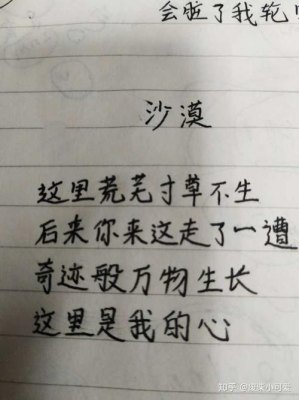 会脏了我轮
沙漠
这里荒芜寸草不生
后来你来这走了一遭
奇迹般万物生长
这里是我的心
知乎